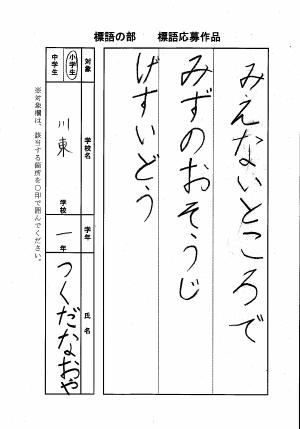 標語の部　標語応募作品
みえないところで
みずのおそうじ
げすいどう
対象
小学生
中学生
学校名
川東
学校
学年
一年
氏名
つくだなおや
※対象欄は、該当する箇所を○印で囲んでください。